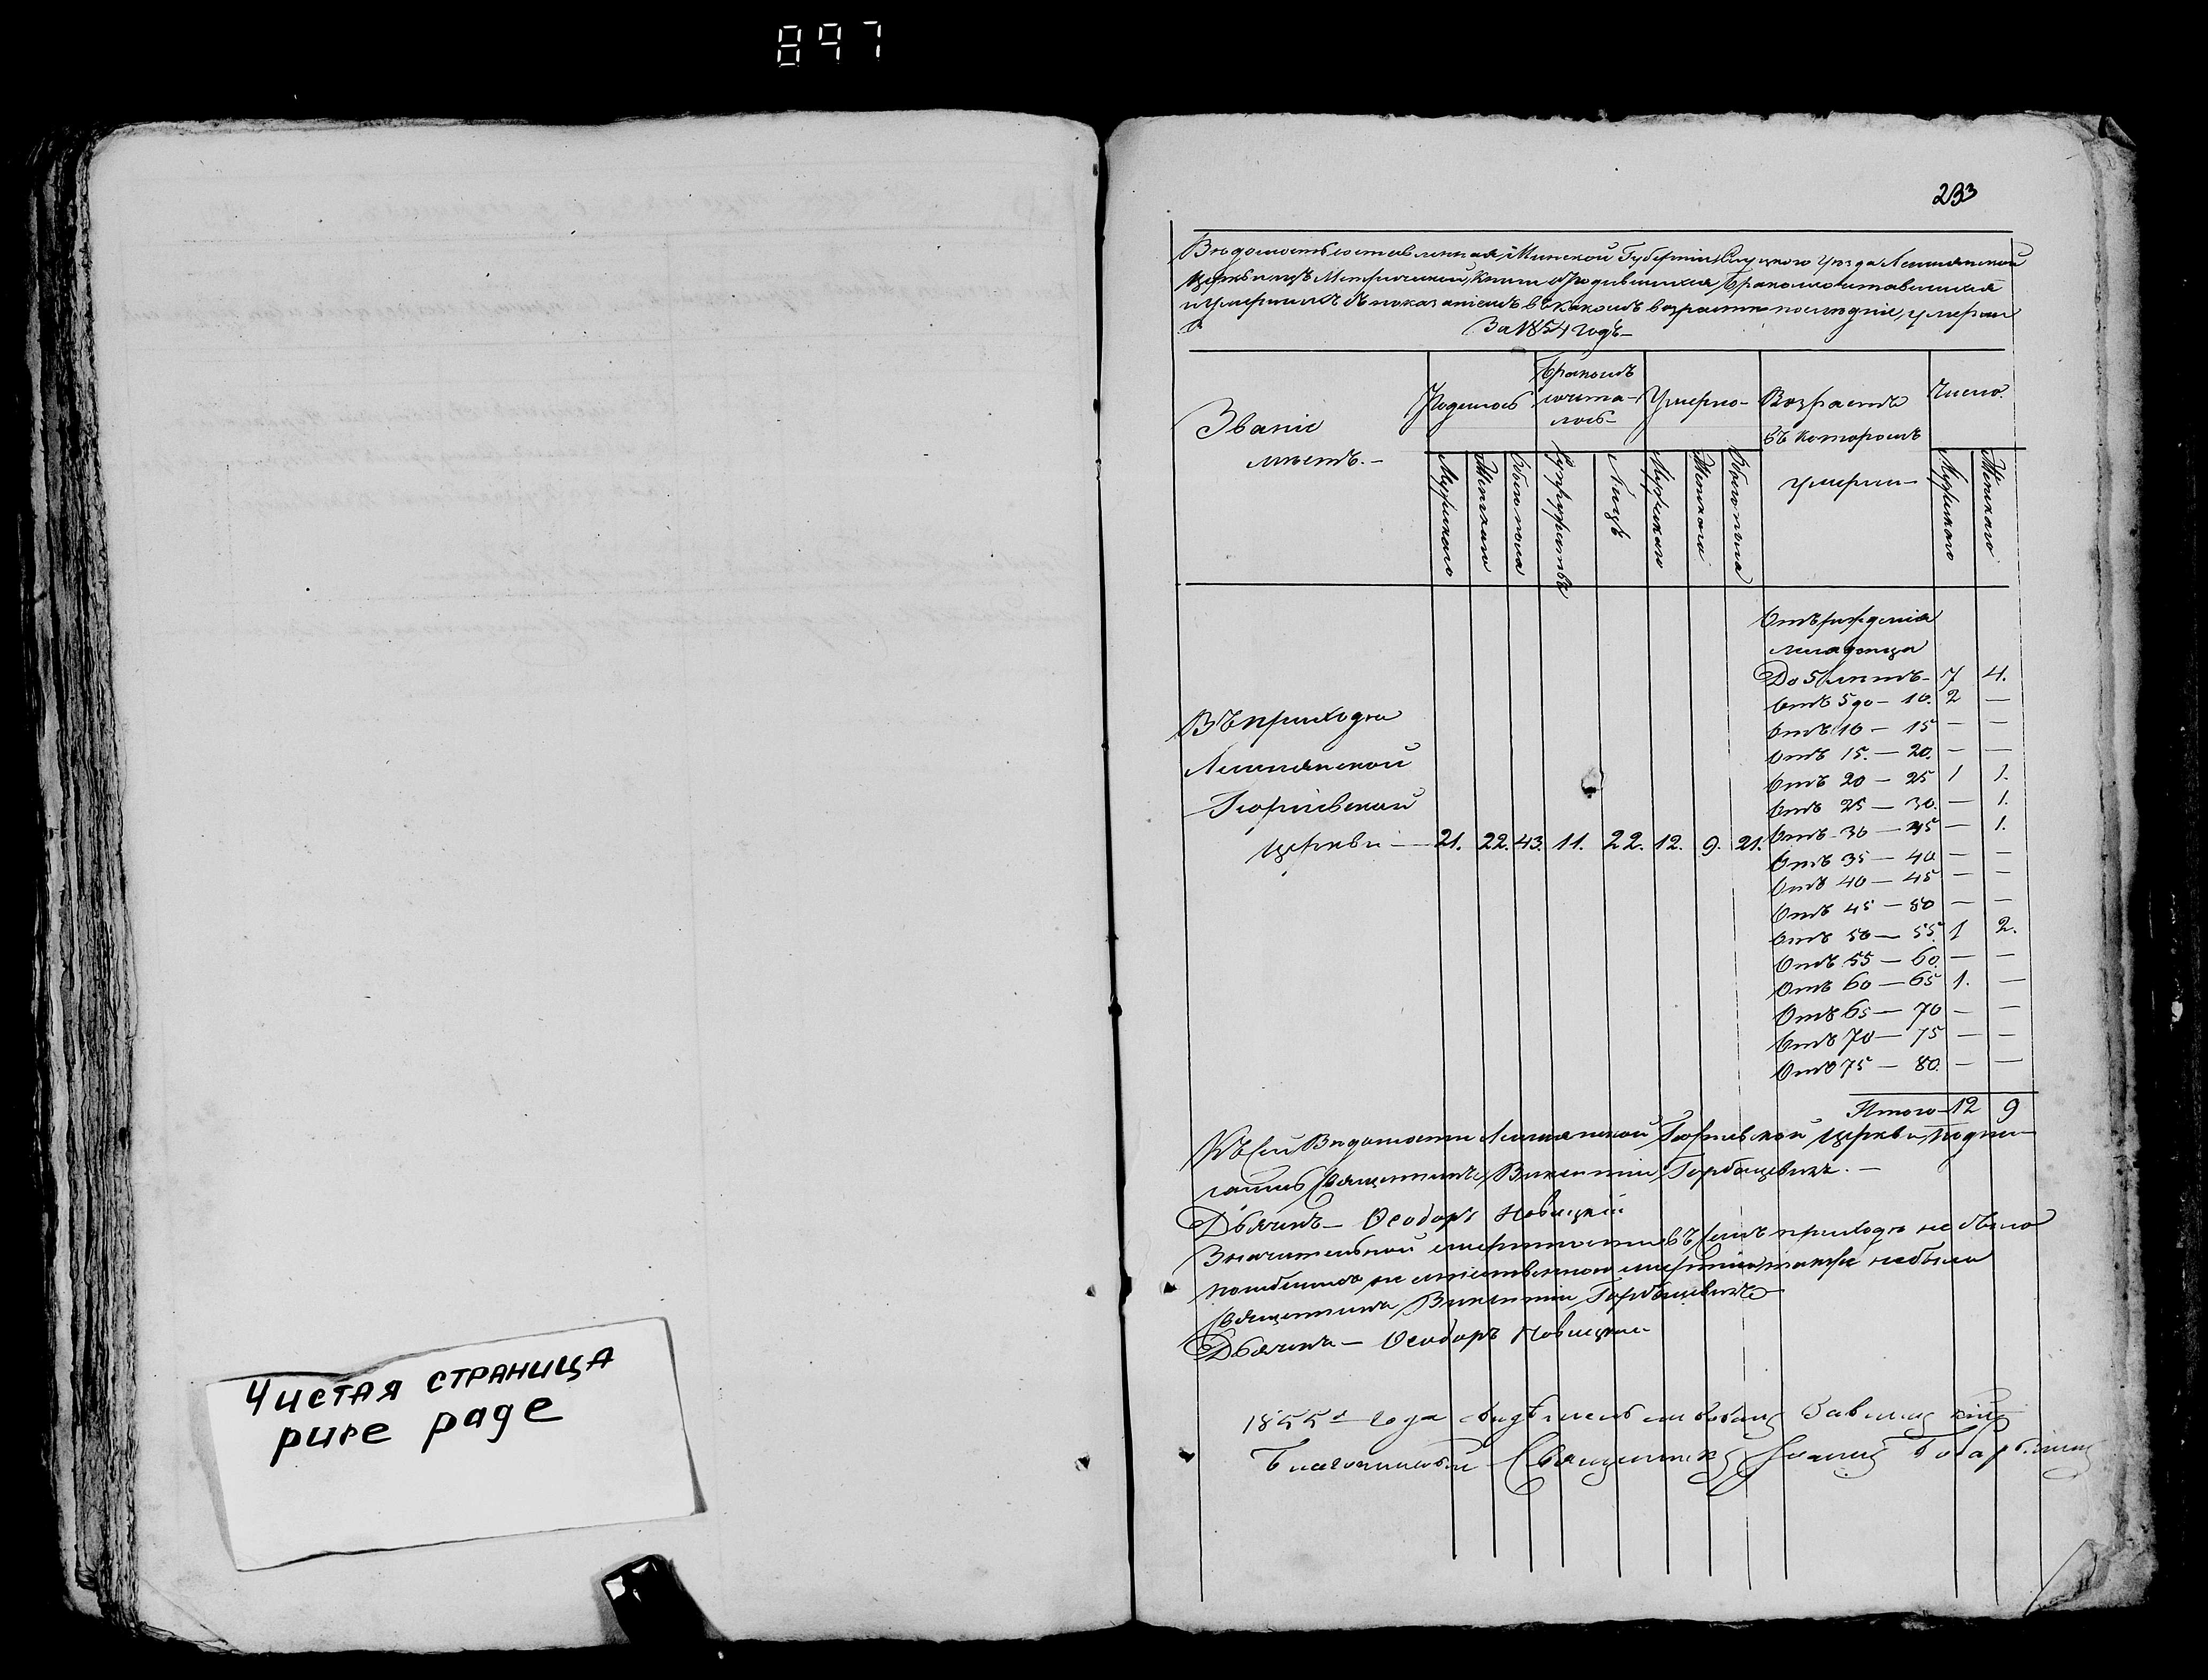 897
233
Вѣдомость составленная Минской Губерніи Слуцкого уѣзда
Церкви изъ Метрической Книги о Родившихся, Бракосочетавшихся
и Умершихъ съ показаніемъ въ какомъ возрастѣ послѣдніе умерли
За 1854 годъ
Званіе
мѣстъ.-
Родилось
Бракомъ
сочета-
лось-
Умерло-
Возрастъ
въ которомъ
умерли-
Число.
Мужскаго
Женскаго
Обоего пола
Супружествъ
Лицъ
Мужскаго
Женскаго
Обоего пола
Мужскаго
Женскаго
Отъ рожденія
младенца
До 5 лѣтъ- 7 4.
Отъ 5 до - 10. 2 —
Отъ 10 - 15 — —
Отъ 15. - 20. — —
Отъ 20 - 25 1 1.
Отъ 25 - 30. — 1.
Отъ 30 - 35 — 1.
Отъ 35 - 40 — —
Отъ 40 - 45 — —
Отъ 45 - 50 — —
Отъ 50 - 55 1 2.
Отъ 55 - 60. — —
Отъ 60 - 65 1. —
Отъ 65 - 70 — —
Отъ 70 - 75 — —
Отъ 75 - 80. — —
Итого- 12 9
Въ приходѣ
Георгіевской
церкви — 21. 22. 43. 11. 22. 12. 9. 21.
Къ сей Вѣдомости Георгіевской церкви подпи-
сались Священникъ Викентій Горбацевичъ.-
Дьячекъ- Ѳеодоръ Новицкій
Значительной смертности въ семъ приходѣ не было
погибшихъ не естественною смертію также небыло
Священникъ Викентій Горбацевичъ
Дьячекъ- Ѳеодоръ Новицкій
1855 года свидѣтельствовалъ
Благочинный Священникъ
Чистая страница
pure page